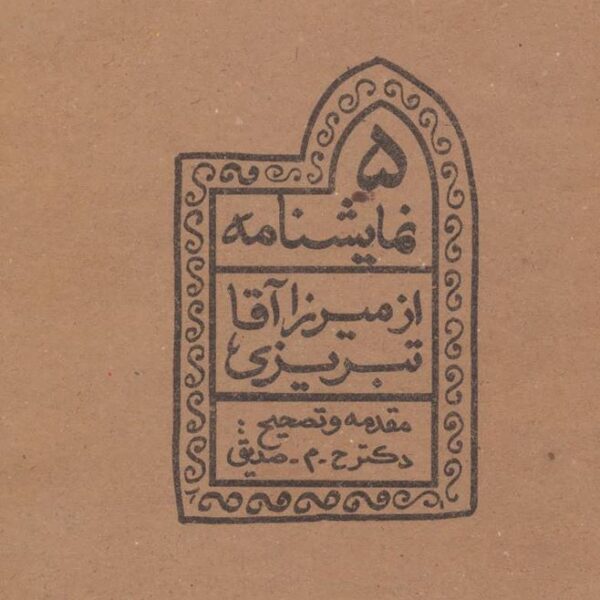 ۵
نمایشنامه
از میرزا آقا
تبریزی
مقدمه و تصحیح :
دکتر ح - م - صدیق